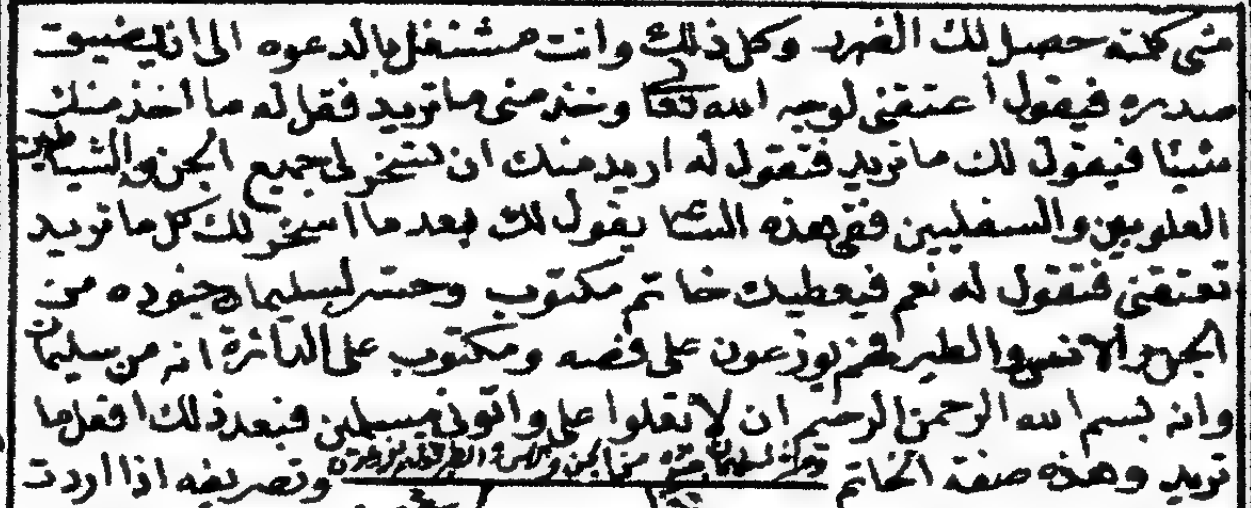 متى كلمته حصل لك الضرر وكل ذلك وانت مشتغل بالدعوه الى ان يضيق
صدره فيقول اعتقني لوجه الله تعالى وخذ مني ما تريد فقل له ما اخذ منك
شيئا فيقول لك ما تريد فتقول له اريد منك ان تسخر لي جميع الجن والشياطين
العلويين والسفليين ففي هذه يقول لك بعد ما اسخر لك كل ما تريد
تعتقني فتقول له نعم فيعطيك خاتم مكتوب وحشر لسليمان جنوده من
الجن والانس والطير فهم يوزعون على فصه ومكتوب على الدائرة انه من سليمان
وانه بسم الله الرحمن الرحيم ان لا تعلوا علي واتوني مسلمين فبعد ذلك افعل ما
تريد وهذه صفة الخاتم وتصريفه اذا اردت